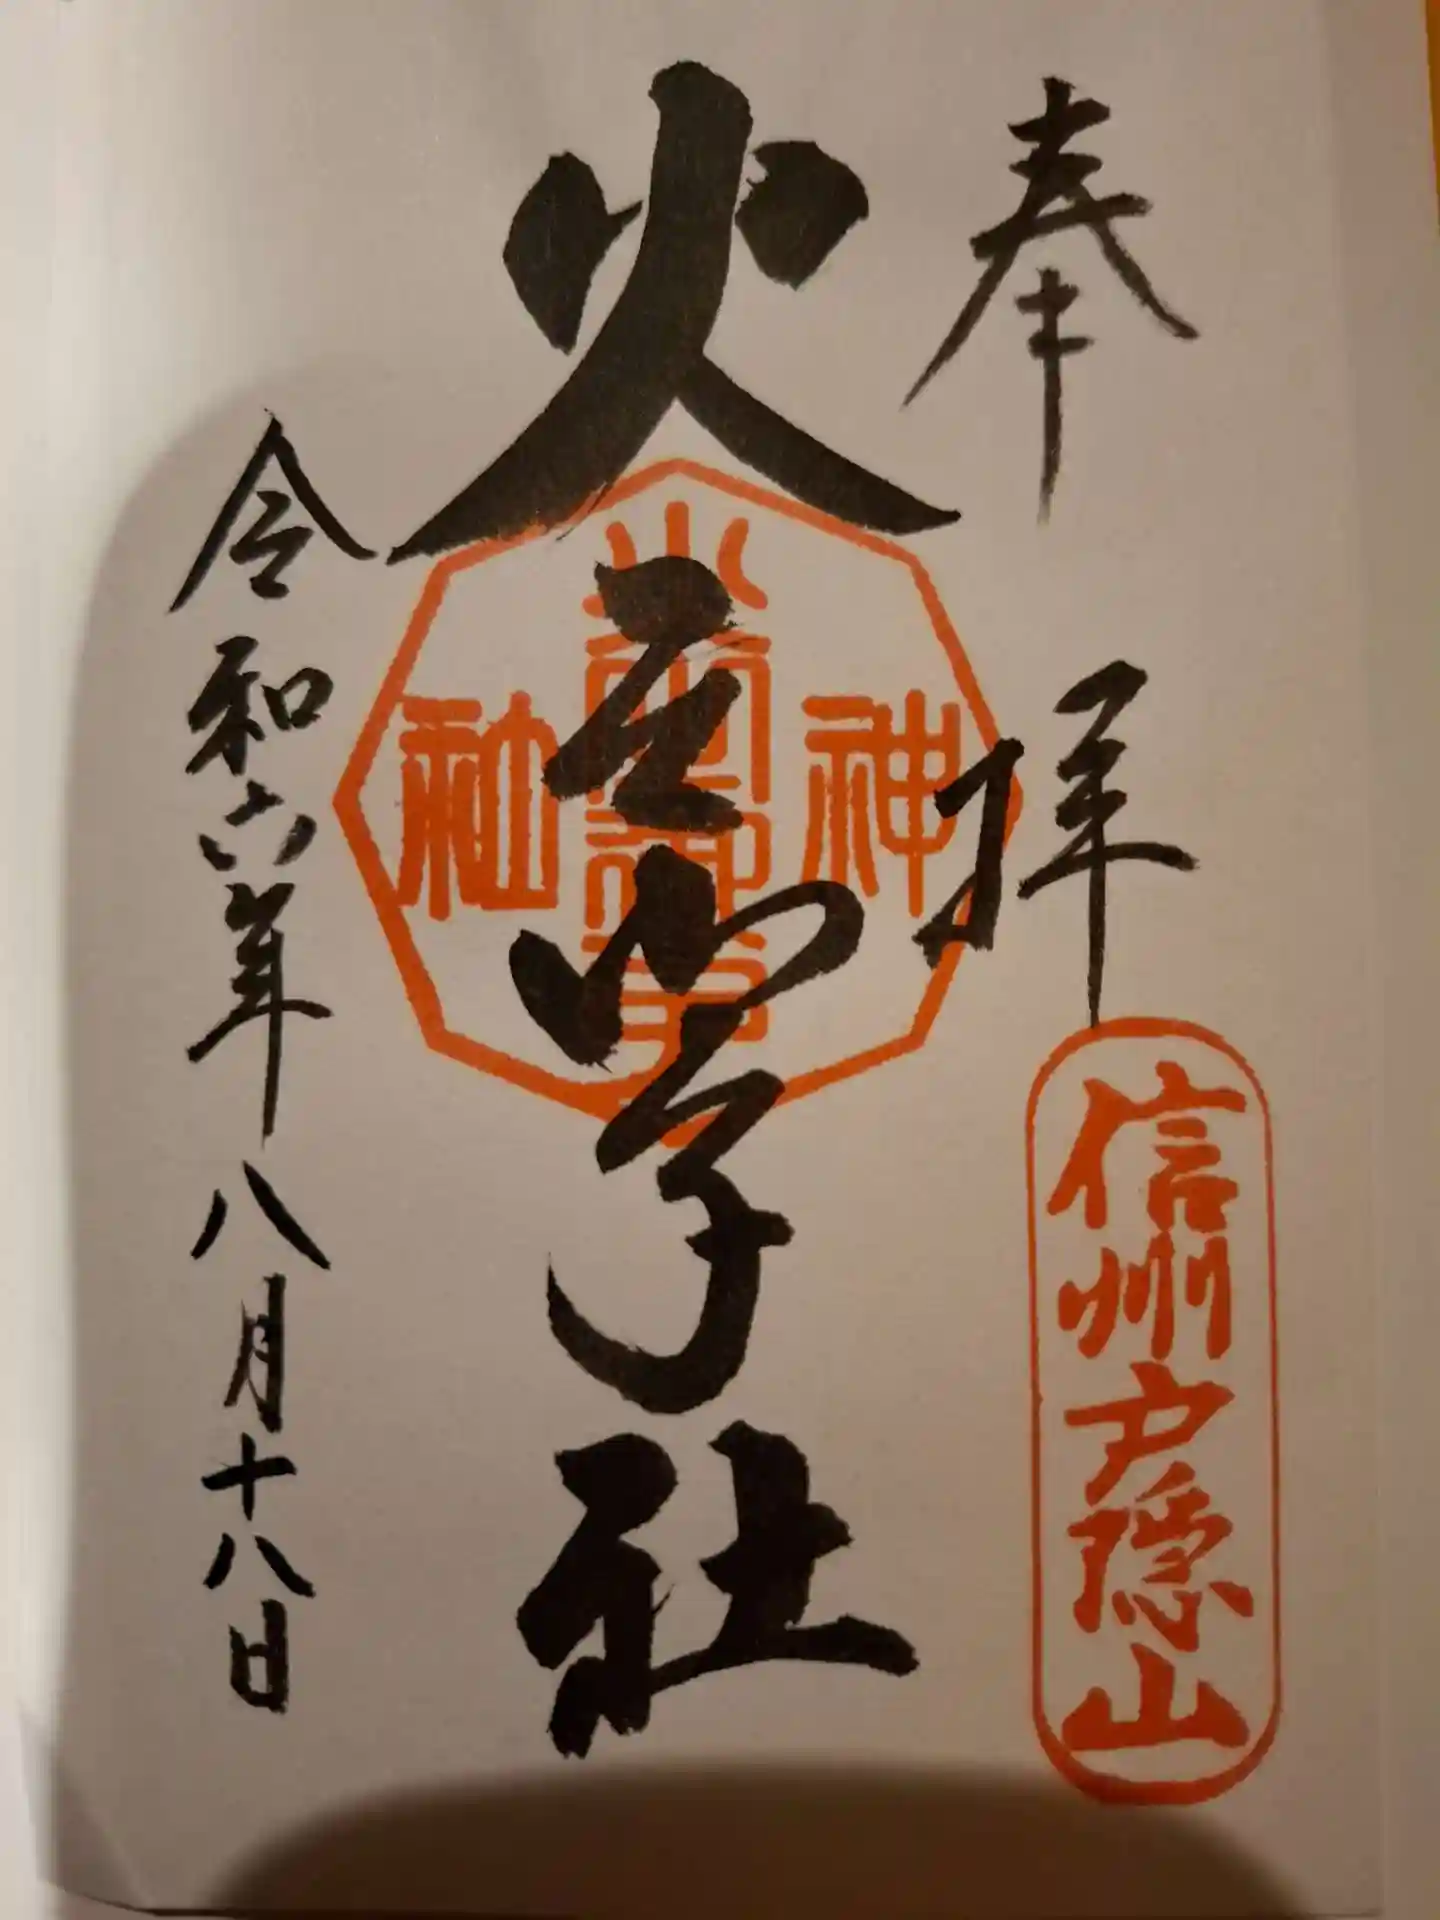 奉拝
信州戸隠山
火之御子社
神
社
令和六年八月十八日